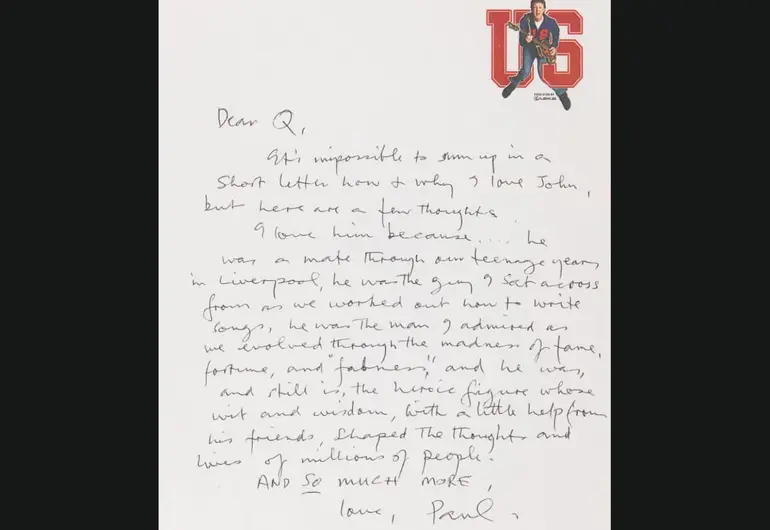 US
Dear Q,
It's impossible to sum up in a
short letter how & why I love John,
but here are a few thoughts.
I love him because.... he
was a mate through our teenage years
in Liverpool, he was the guy I sat across
from as we worked out how to write
songs, he was the man I admired as
we evolved through the madness of fame,
fortune, and "fabness", and he was,
and still is, the heroic figure whose
wit and wisdom, with a little help from
his friends, shaped the thoughts and
lives of millions of people.
AND SO MUCH MORE,
love, Paul.